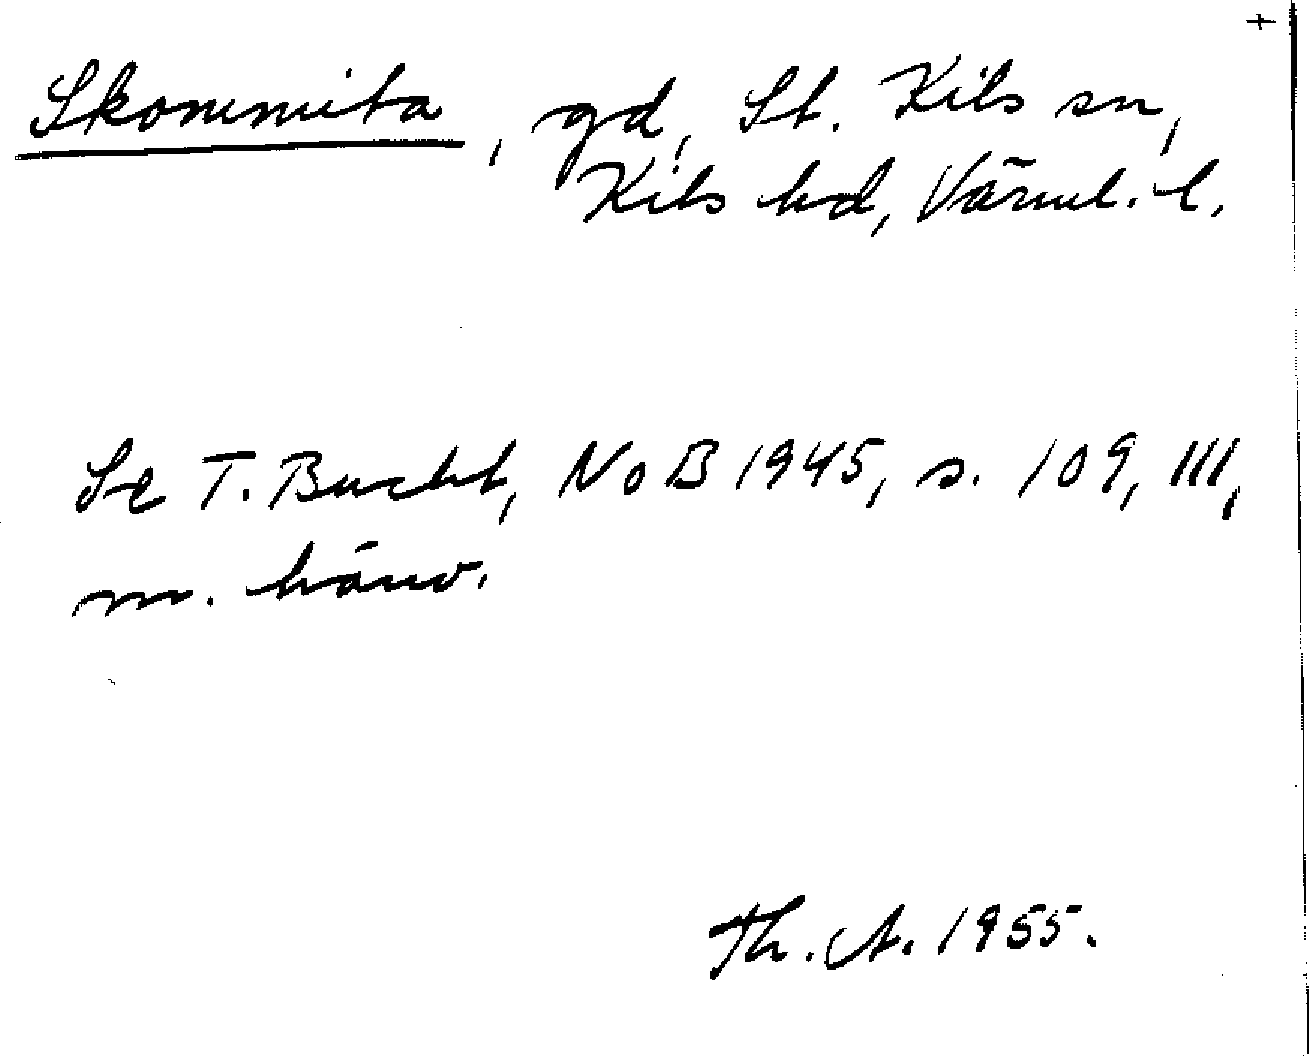 +
Skommita, gd, St. Kils sn,
Kils hd, Värml. l.
Se T. Bucht, NoB 1945, s. 109, 111,
m. hänv.
Th. A. 1955.